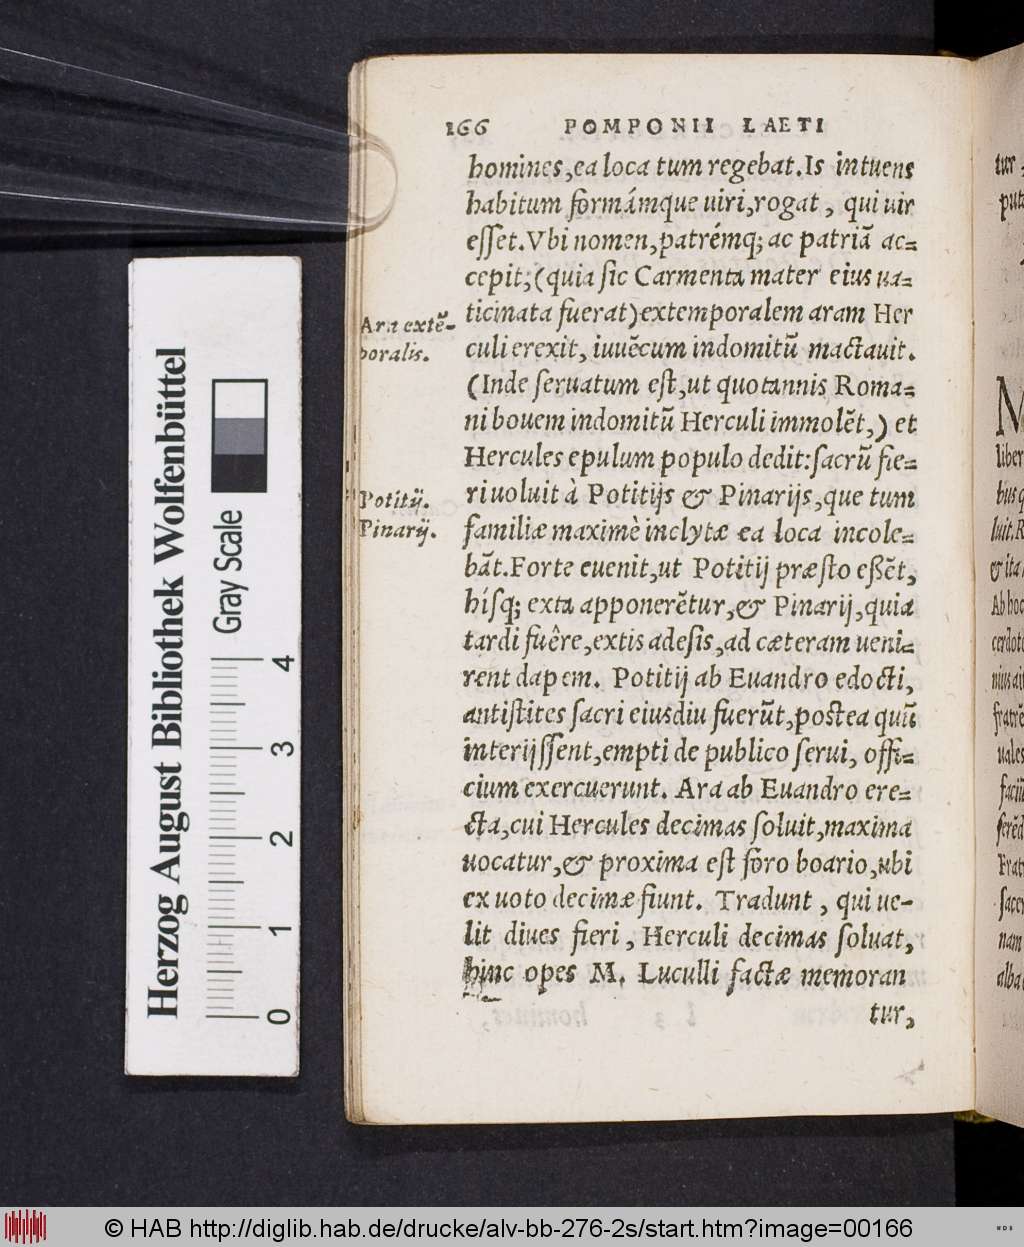 166 POMPONII LAETI
homines,ea loca tum regebat.Is intuens
habitum formámque uiri,rogat, qui uir
esset.Vbi nomen,patrémq; ac patriã ac=
cepit;(quia sic Carmenta mater eius ua=
ticinata fuerat)extemporalem aram Her
culi erexit, iuuẽcum indomitũ mactauit.
(Inde seruatum est,ut quotannis Roma=
ni bouem indomitũ Herculi immolẽt,) et
Hercules epulum populo dedit:sacrũ fie=
ri uoluit à Potitijs & Pinarijs,que tum
familiæ maximè inclytæ ea loca incole=
bãt.Forte euenit,ut Potitij præsto eßẽt,
hísq; exta apponerẽtur,& Pinarij,quia
tardi fuêre,extis adesis,ad cæteram ueni=
rent dapem. Potitij ab Euandro edocti,
antistites sacri eiusdiu fuerũt,postea quũ
interijssent,empti de publico serui, offi=
cium exercuerunt. Ara ab Euandro ere=
cta,cui Hercules decimas soluit,maxima
uocatur,& proxima est foro boario,ubi
ex uoto decimæ fiunt. Tradunt, qui ue-
lit diues fieri, Herculi decimas soluat,
hinc opes M. Luculli factæ memoran
tur,
Ara extẽ-
poralis.
Potitij.
Pinarij.
Herzog August Bibliothek Wolfenbüttel
Gray Scale
0 1 2 3 4
tur,
puta
M
liber
bus q
luit.R
& ita
Ab hoc
cerdoto
nius ai
fratrẽ
uales
faciũ
ferẽd
Frat
sacer
nam
alba
© HAB http://diglib.hab.de/drucke/alv-bb-276-2s/start.htm?image=00166